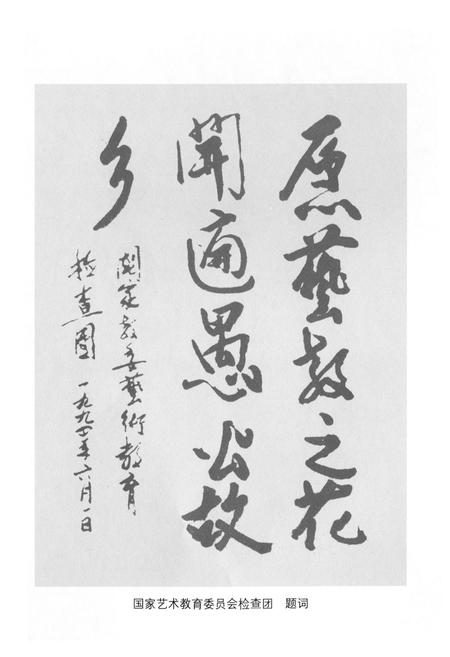 愿藝教之花
開遍愚公故
乡
國家教委藝術教育
检查團 一九九年六月一日
国家艺术教育委员会检查团 题词